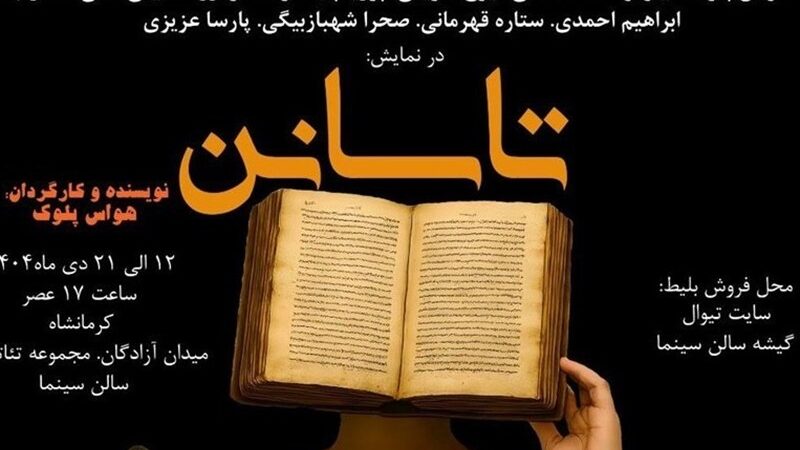 ابراهیم احمدی. ستاره قهرمانی. صحرا شهبازبیگی. پارسا عزیزی
در نمایش:
تاسانن
نویسنده و کارگردان:
هواس پلوک
۱۲ الی ۲۱ دی ماه
ساعت ۱۷ عصر
کرمانشاه
میدان آزادگان. مجموعه
سالن سینما
محل فروش بلیط:
سایت تیوال
گیشه سالن سینما